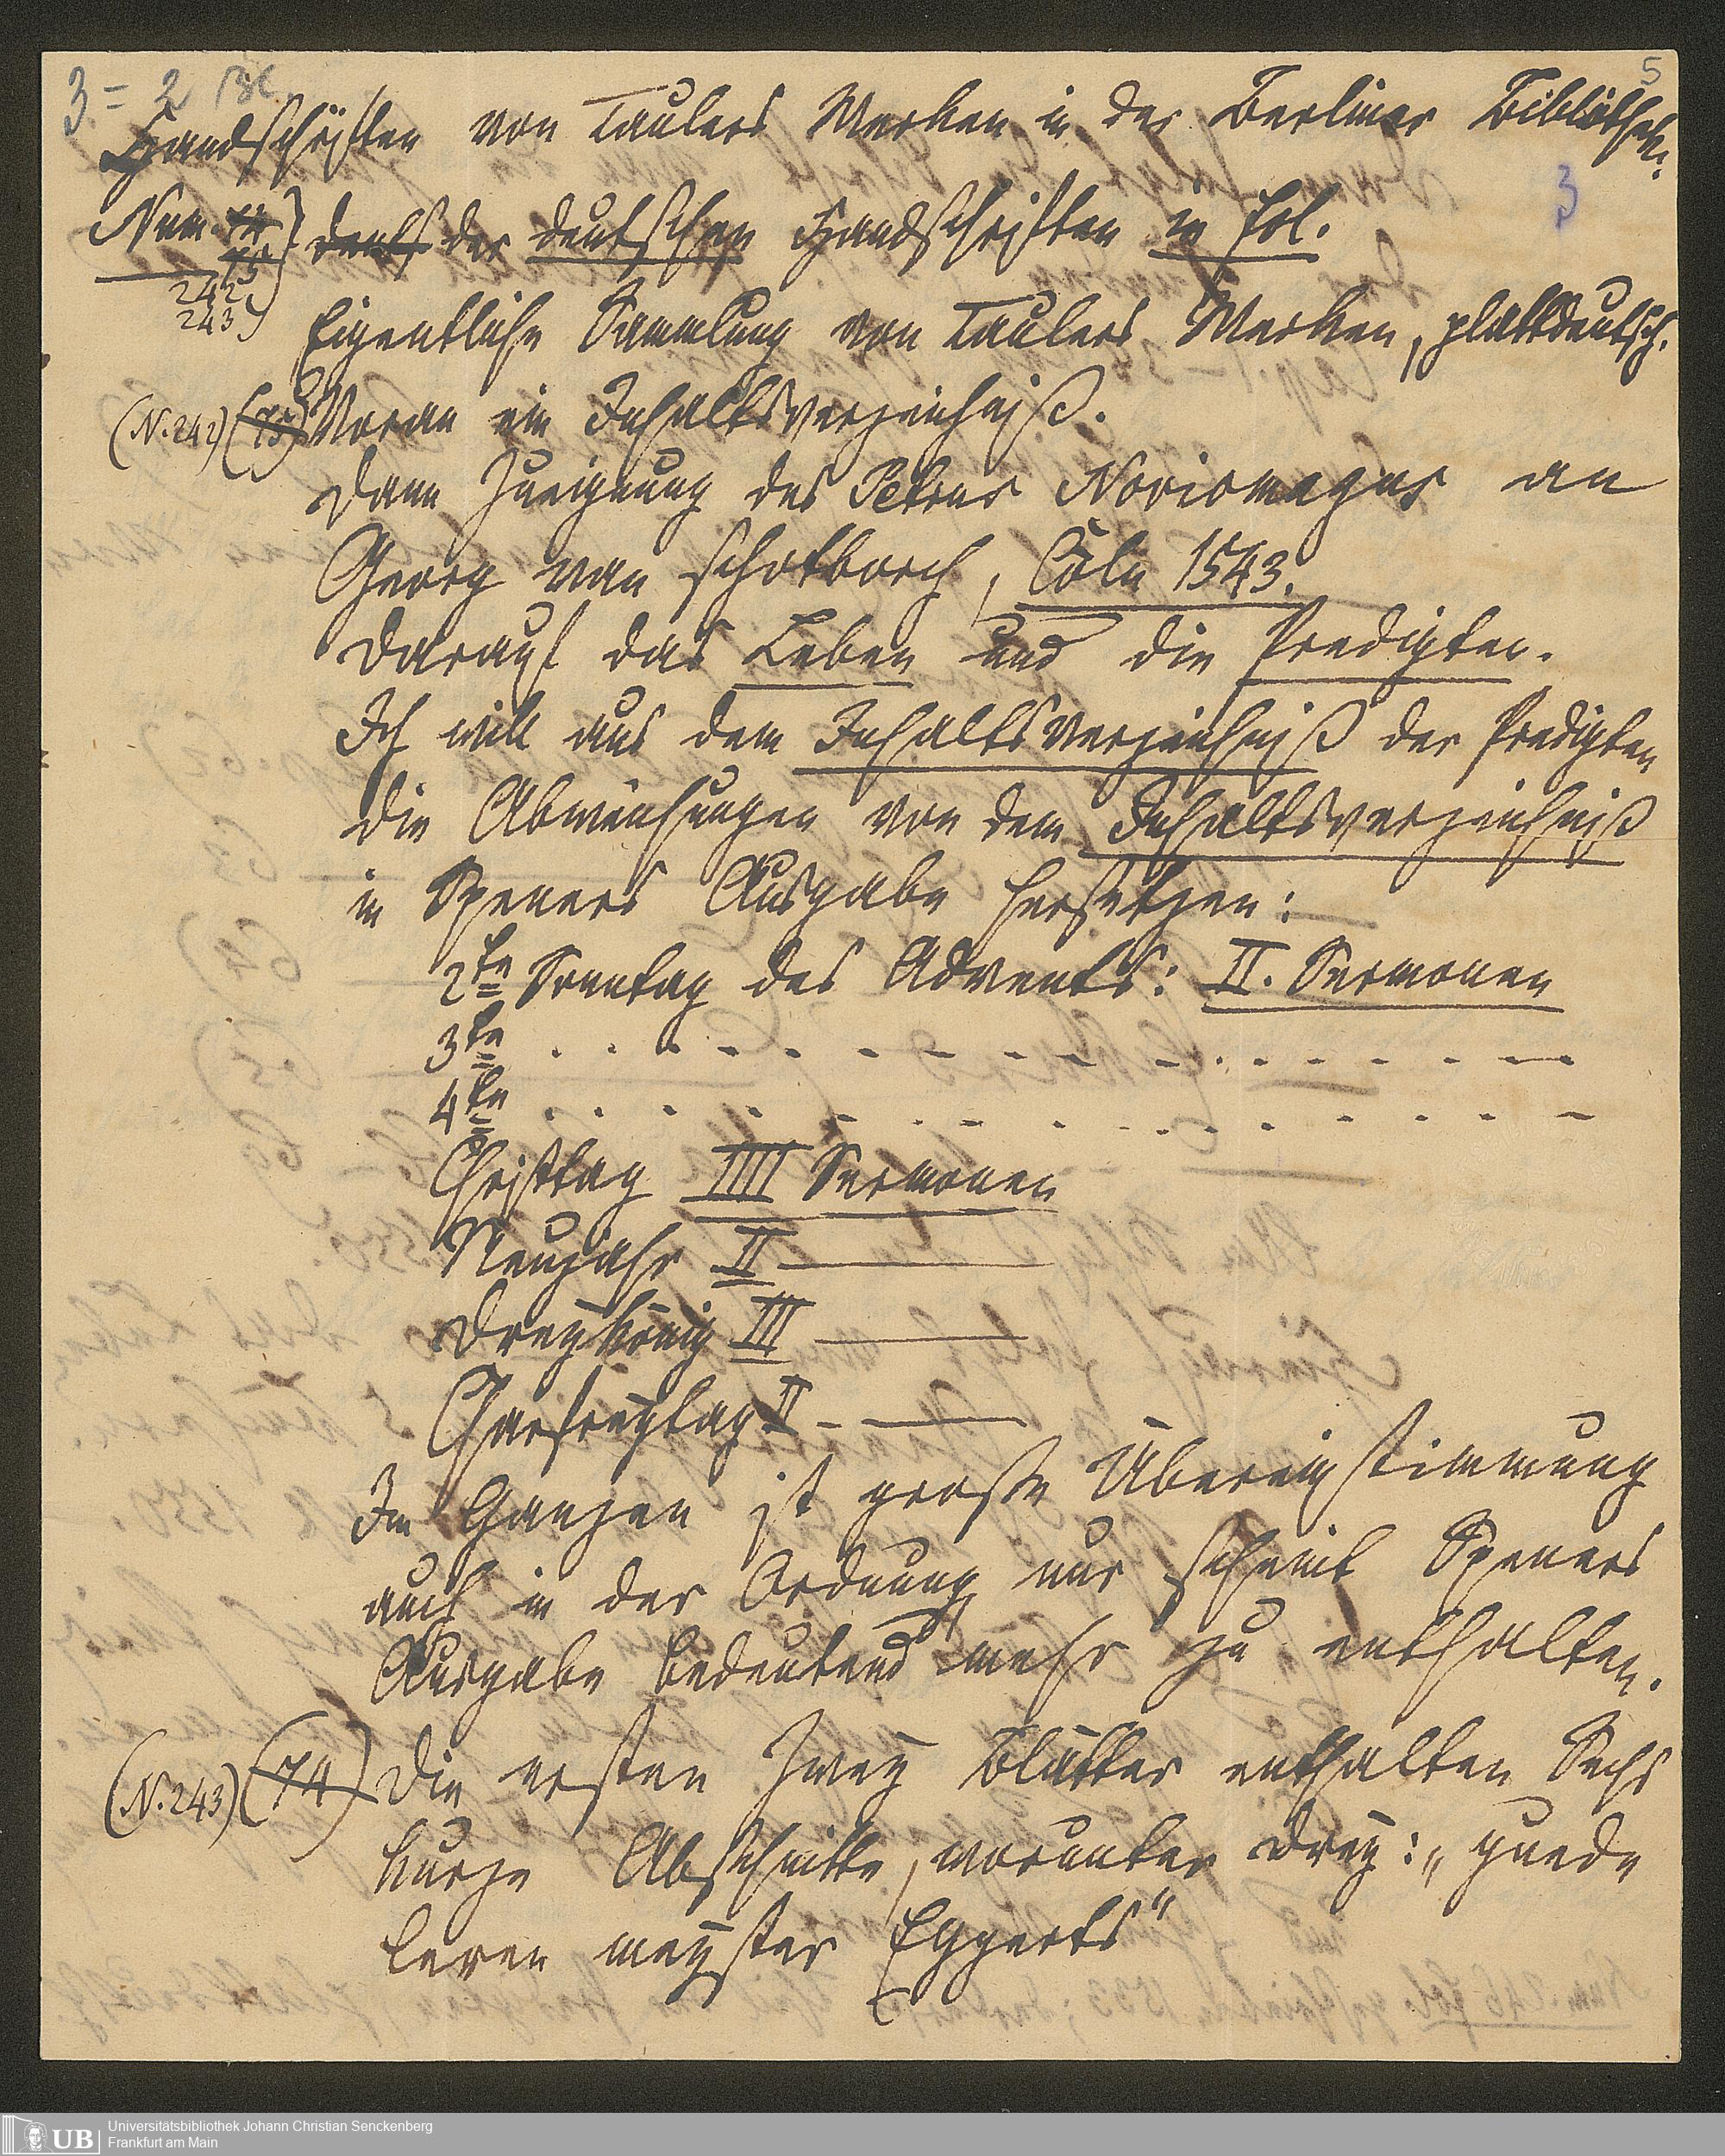 3 = 2 Bl.
5
Handschriften von Taulers Werken in der Berliner Bibliothek.
3
Num. 74 deuts der deutschen Handschriften in fol.
75
242
243
Eigentliche Sammlung von Taulers Werken, plattdeutsch.
(N. 242) (75) Voran ein Inhaltsverzeichniß.
Dann Zueignung des Petrus Noviomagus an
Georg van Schotborch, Cöln 1543.
Darauf das Leben und die Predigten.
Ich will aus dem Inhaltsverzeichniß der Predigten
die Abweichungen von dem Inhaltsverzeichniß
in Speners Ausgabe hersetzen:
2te Sonntag des Advents: II. Sermonen
3te . . . . - - - - - - - - - -
4te . . . . - - - - - - - - - -
Christtag IIII Sermonen
Neujahr II ———
Dreykönig III ———
Charfreytag II - ———
Im Ganzen ist große Übereinstimmung
auch in der Ordnung, nur scheint Speners
Ausgabe bedeutend mehr zu enthalten.
(N. 243) (74) Die ersten zwey Blätter enthalten Sechs
kurze Abschnitte, worunter drey: „guede
leren meyster Eggerts“
Universitätsbibliothek Johann Christian Senckenberg
Frankfurt am Main
UB